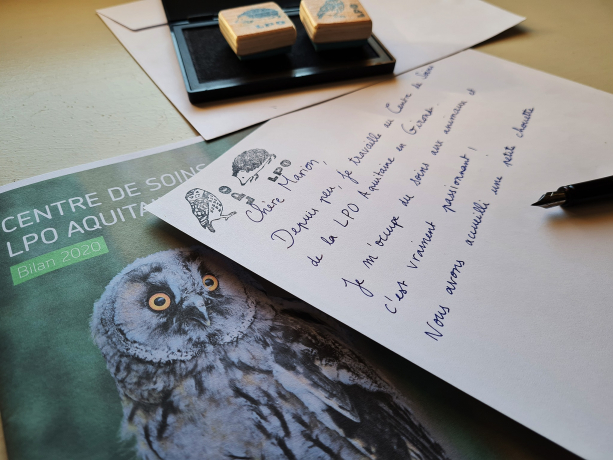 LPO
CENTRE DE SOINS
LPO AQUITA
Bilan 2020
LPO
Chère Marion,
Depuis peu, je travaille au Centre de Soins
de la LPO Aquitaine en Gironde.
Je m'occupe des soins aux animaux et
c'est vraiment passionnant !
Nous avons accueilli une petite chouette